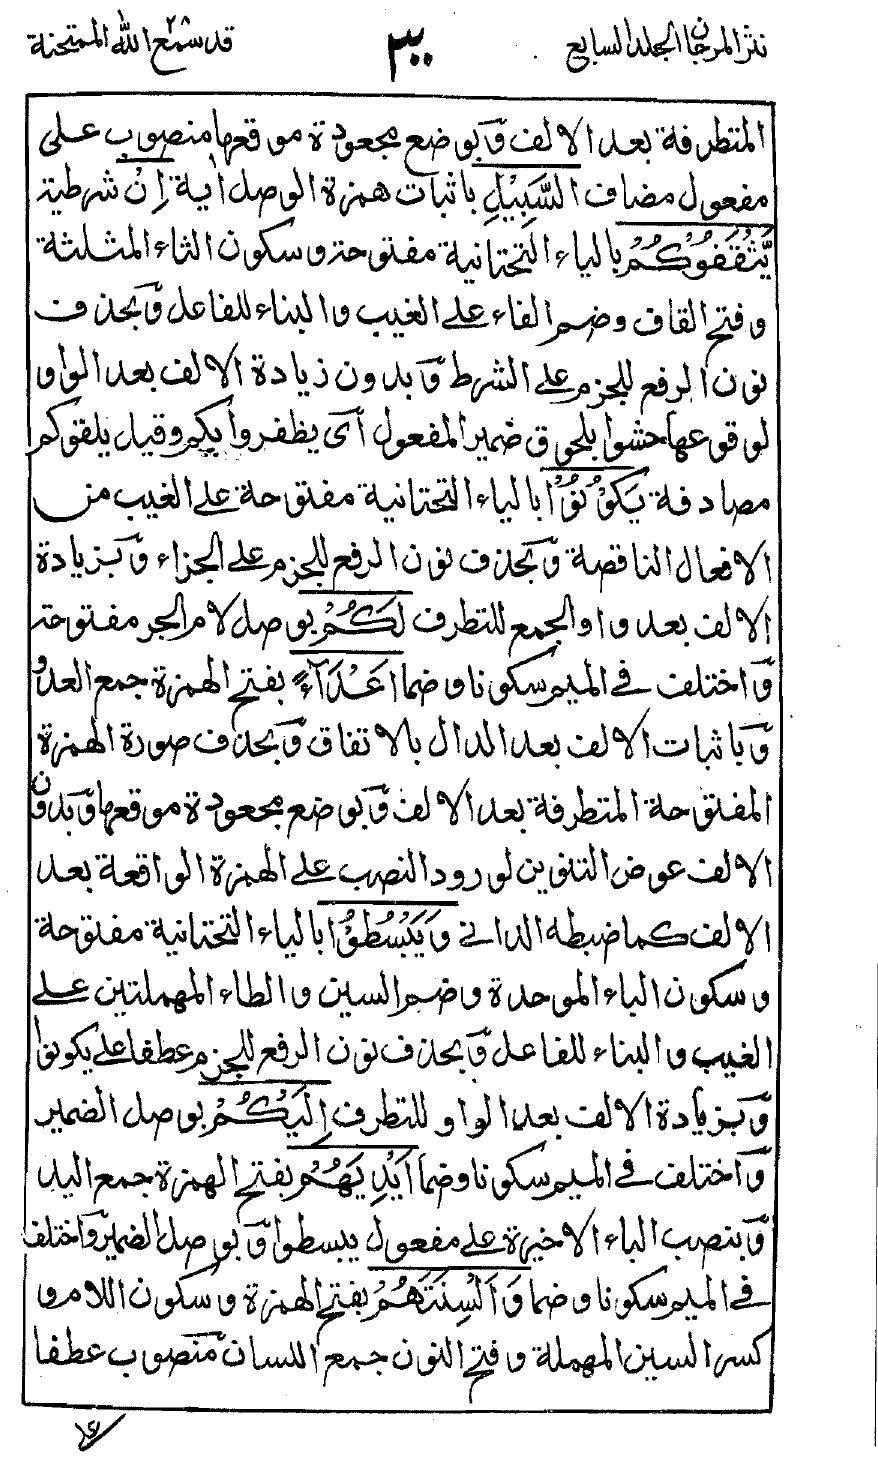 نثر المرجان الجلد السابع ٣٠٠ قد سمع الله ٢٨ الممتحنة
المتطرفة بعد الالف وَبوضع مجعودة موقعها منصوب على
مفعول مضاف السَّبِيْلِ باثبات همزة الوصل اٰية اِنْ شرطية
يَّثْقَفُوْكُمْ بالياء التحتانية مفتوحة وسكون الثاء المثلثة
وفتح القاف وضم الفاء على الغيب والبناء للفاعل وَبحذف
نون الرفع للجزم على الشرط وَبدون زيادة الالف بعد الواو
لوقوعها حشوا بلحوق ضمير المفعول اَى يظفروا بكم وقيل يلقوكم
مصادفة يَكُوْنُوْا بالياء التحتانية مفتوحة على الغيب من
الافعال الناقصة وَبحذف نون الرفع للجزم على الجزاء وَبزيادة
الالف بعد واو الجمع للتطرف لَكُمْ بوصل لام الجر مفتوحة
وَاختلف فى الميم سكونا وضما اَعْدَآءً بفتح الهمزة جمع العدو
وَباثبات الالف بعد الدال بالاتفاق وَبحذف صورة الهمزة
المفتوحة المتطرفة بعد الالف وَبوضع مجعودة موقعها وَبدون
الالف عوض التنوين لورود النصب على الهمزة الواقعة بعد
الالف كما ضبطه الدانى وَيَبْسُطُوْا بالياء التحتانية مفتوحة
وسكون الباء الموحدة وضم السين والطاء المهملتين على
الغيب والبناء للفاعل وَبحذف نون الرفع للجزم عطفا على يكونوا
وَبزيادة الالف بعد الواو للتطرف اِلَيْكُمْ بوصل الضمير
وَاختلف فى الميم سكونا وضما اَيْدِيَهُمْ بفتح الهمزة جمع اليد
وَبنصب الياء الاخيرة على مفعول يبسطوا وَبوصل الضمير وَاختلف
فى الميم سكونا وضما وَاَلْسِنَتَهُمْ بفتح الهمزة وسكون اللام و
كسر السين المهملة وفتح النون جمع اللسان منصوب عطفا